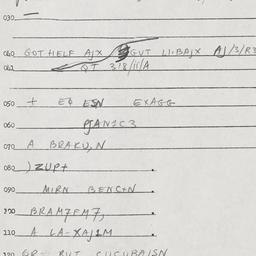 030
040 GOTHELF AJX GVT LI-BAJX AJ/3/R3
041 QT 318/11/A
050 + EQ ESN EXAGG
060 PJAN2C3
070 A BRAKU,N
080 ) ZUP+ .
090 MIRN BENC+N .
100 BRAM7FM7, .
110 A LA-XAJ1M .
120 GR- BUT CUCUBAJSN